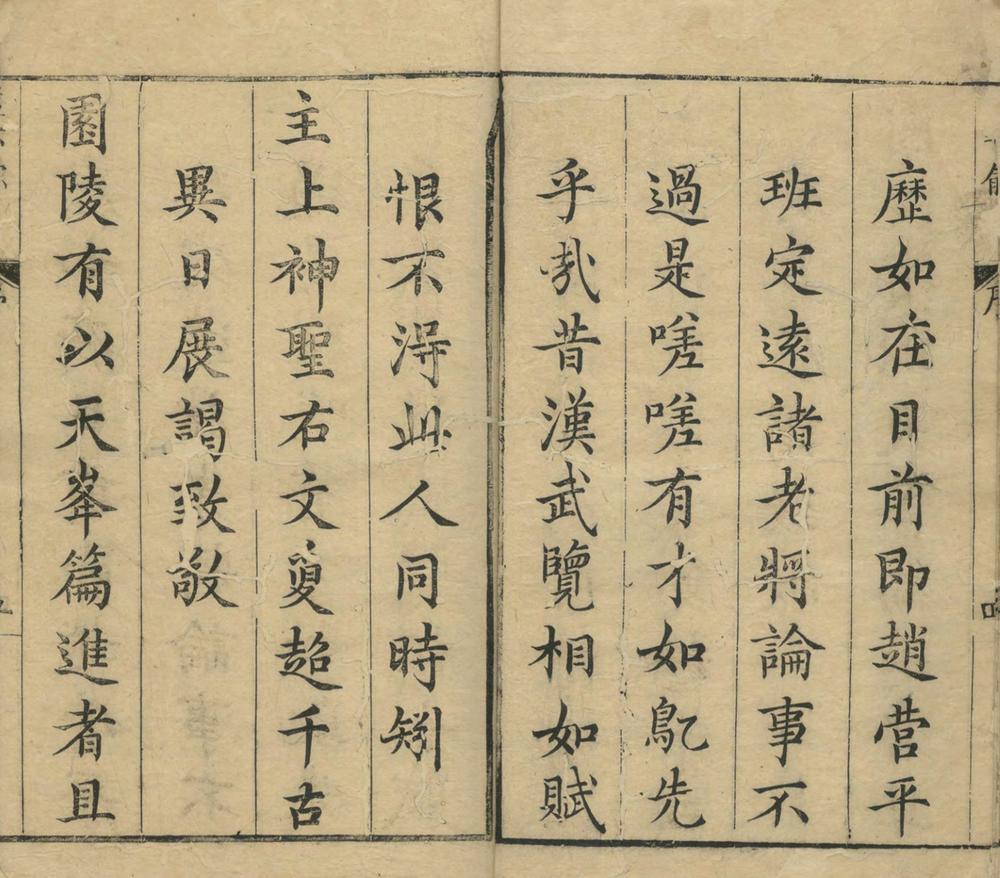 歷如在目前即趙营平
班定遠諸老將論事不
過是嗟嗟有才如鳦先
乎哉昔漢武覽相如賦
恨不淂此人同時矧
主上神聖右文夐超千古
異日展謁致敬
園陵有以天峯篇進者且